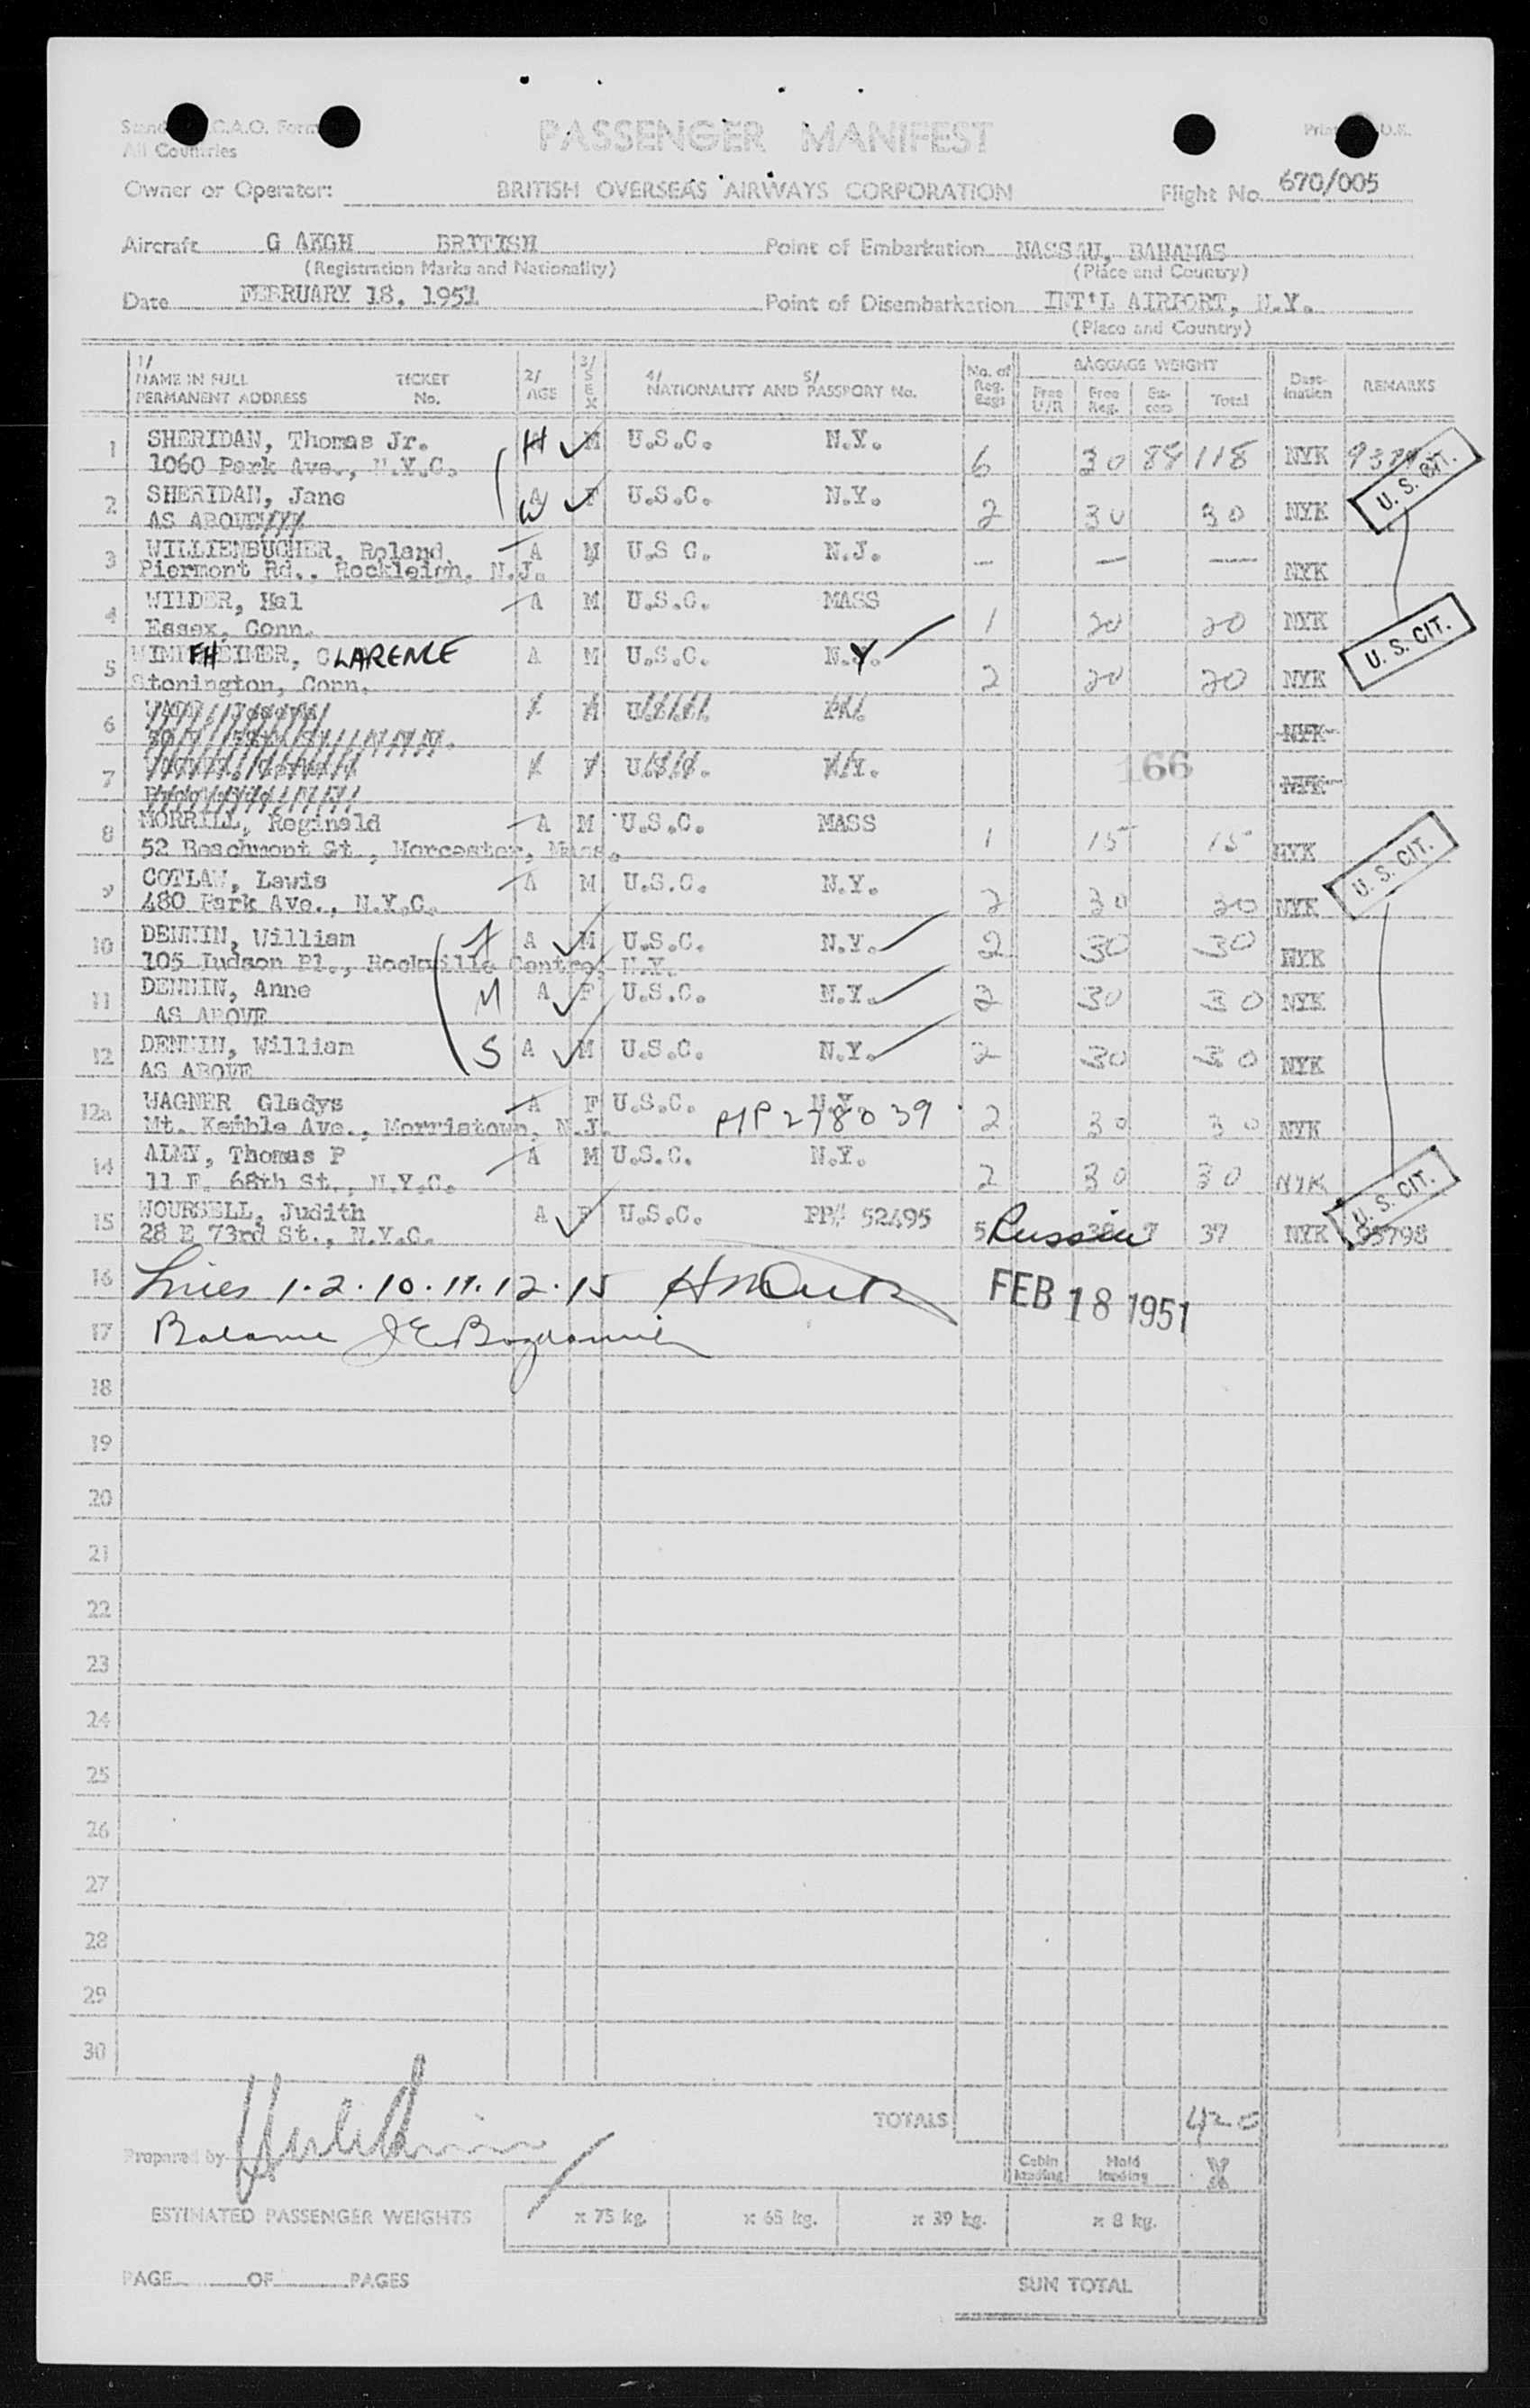 PASSENGER MANIFEST
All Countries
Owner or Operator: BRITISH OVERSEAS AIRWAYS CORPORATION Flight No. 670/005
Aircraft G AKGH BRITISH Point of Embarkation NASSAU, BAHAMAS
(Registration Marks and Nationality) (Place and Country)
Date FEBRUARY 18, 1951 Point of Disembarkation INT'L AIRPORT, N.Y.
(Place and Country)
1/ NAME IN FULL PERMANENT ADDRESS TICKET No. 2/ AGE 3/ SEX 4/ 5/ NATIONALITY AND PASSPORT No. No. of Reg. Bags BAGGAGE WEIGHT Free U/R Free Reg. Ex-cess Total Dest-ination REMARKS
1 SHERIDAN, Thomas Jr. H M U.S.C. N.Y. 6 30 88 118 NYK
1060 Park Ave., N.Y.C.
U. S. CIT.
2 SHERIDAN, Jane A W F U.S.C. N.Y. 2 30 30 NYK
AS ABOVE
3 WILLIENBUCHER, Roland A M U.S C. N.J. — — — NYK
Piermont Rd., Rockleigh, N.J.
4 WILDER, Hal A M U.S.C. MASS 1 20 20 NYK
Essex, Conn.
U. S. CIT.
5 CLARENCE A M U.S.C. N.Y. 2 20 20 NYK
Stonington, Conn.
6 NYK
7 NYK
166
8 MORRILL, Reginald A M U.S.C. MASS 1 15 15 NYK
52 Beachmont St., Worcester, Mass.
U. S. CIT.
9 COTLAW, Lewis A M U.S.C. N.Y. 2 30 30 NYK
480 Park Ave., N.Y.C.
10 DENNIN, William A M U.S.C. N.Y. 2 30 30 NYK
105 Judson Pl., Rockville Centre, N.Y.
11 DENNIN, Anne M A F U.S.C. N.Y. 2 30 30 NYK
AS ABOVE
12 DENNIN, William S A M U.S.C. N.Y. 2 30 30 NYK
AS ABOVE
12a WAGNER Gladys A F U.S.C. N.Y. 2 30 30 NYK
Mt. Kemble Ave., Morristown, N.J. PP 278039
14 ALMY, Thomas P A M U.S.C. N.Y. 2 30 30 NYK
11 E. 68th St., N.Y.C.
U. S. CIT.
15 WOURSELL, Judith A F U.S.C. PP# 52495 5 30 7 37 NYK 95798
28 E 73rd St., N.Y.C.
16 Lines 1.2.10.11.12.15
FEB 18 1951
17 Balance
18
19
20
21
22
23
24
25
26
27
28
29
30
TOTALS 420
Prepared by
Cabin loading Hold loading
ESTIMATED PASSENGER WEIGHTS x 75 kg. x 65 kg. x 39 kg. x 8 kg.
PAGE OF PAGES SUM TOTAL